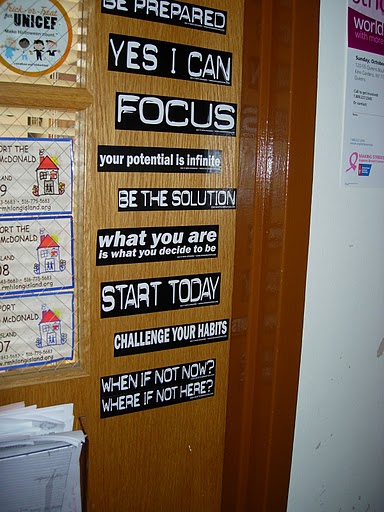 Trick-or-Treat
for UNICEF
Make Halloween Count.
BE PREPARED
YES I CAN
FOCUS
your potential is infinite
BE THE SOLUTION
what you are
is what you decide to be
START TODAY
CHALLENGE YOUR HABITS
WHEN IF NOT NOW?
WHERE IF NOT HERE?
PORT THE
McDONALD
ISLAND
09
516-775-5683
PORT THE
McDONALD
SLAND
08
516-775-5683
.rmhlongisland.org
PORT
McDONALD
SLAND
07
516-775-5683
rmhlongisland.org
world
with more
Sunday, October